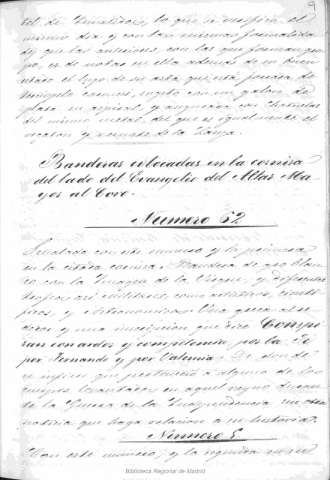 9
tel de Inválidos, lo que se verificó el
mismo día y con las mismas formalida
des que las anteriores, con las que forman gru
po, es de notar en ella además de su buen
estado el lujo de su asta que está forrada de
terciopelo carmesí, sujeto con un galón de
plata en espiral, y asegurado con tachuelas
del mismo metal, del que es igualmente el
regatón y remate de la lanza.
Banderas colocadas en la cornisa
del lado del Evangelio del Altar Ma-
yor al Coro.
Numero 52
Señalada con este numero y la primera
en la citada cornisa. Bandera de glo blan
co con la Imagen de la Virgen, y diferentes
trofeos así militares, como artísticos, cientí
ficos, y Una greca al re
dedor y una inscripcion que dice
con ardor y por la Fe
por Fernando y por Valencia. De donde
se infiere que perteneció a alguno de los
cuerpos levantados en aquel reyno durante
la Guerra de la Independencia sin otra
noticia que haga relacion a su historia.
Numero 5.
Con este numero, y la segunda en el
Biblioteca Regional de Madrid